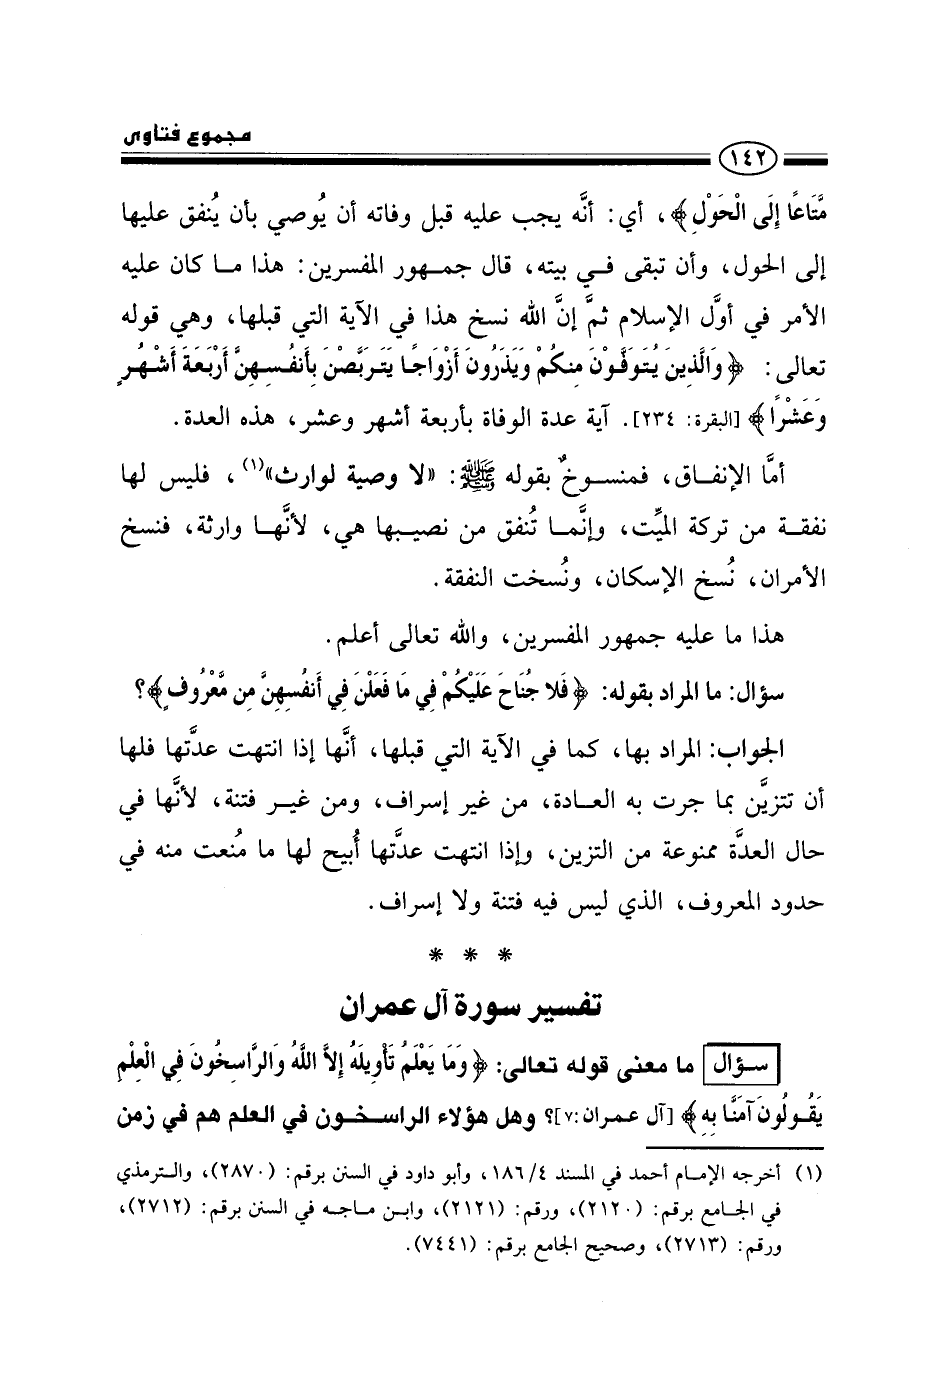 مجموع فتاوى
١٤٢
مَّتَاعًا إِلَى الْحَوْلِ﴾، أي: أنَّه يجب عليه قبل وفاته أن يُوصي بأن يُنفق عليها
إلى الحول، وأن تبقى في بيته، قال جمهور المفسرين: هذا ما كان عليه
الأمر في أوَّل الإسلام ثمَّ إنَّ الله نسخ هذا في الآية التي قبلها، وهي قوله
تعالى: ﴿وَالَّذِينَ يُتَوَفَّوْنَ مِنكُمْ وَيَذَرُونَ أَزْوَاجًا يَتَرَبَّصْنَ بِأَنفُسِهِنَّ أَرْبَعَةَ أَشْهُرٍ
وَعَشْرًا﴾ [البقرة: ٢٣٤]. آية عدة الوفاة بأربعة أشهر وعشر، هذه العدة.
أمَّا الإنفاق، فمنسوخٌ بقوله ﷺ: «لا وصية لوارث»(١)، فليس لها
نفقة من تركة الميِّت، وإنَّما تُنفق من نصيبها هي، لأنَّها وارثة، فنسخ
الأمران، نُسخ الإسكان، ونُسخت النفقة.
هذا ما عليه جمهور المفسرين، والله تعالى أعلم.
سؤال: ما المراد بقوله: ﴿فَلا جُنَاحَ عَلَيْكُمْ فِي مَا فَعَلْنَ فِي أَنفُسِهِنَّ مِن مَّعْرُوفٍ﴾؟
الجواب: المراد بها، كما في الآية التي قبلها، أنَّها إذا انتهت عدَّتها فلها
أن تتزيَّن بما جرت به العادة، من غير إسراف، ومن غير فتنة، لأنَّها في
حال العدَّة ممنوعة من التزين، وإذا انتهت عدَّتها أُبيح لها ما مُنعت منه في
حدود المعروف، الذي ليس فيه فتنة ولا إسراف.
* * *
تفسير سورة آل عمران
سؤال ما معنى قوله تعالى: ﴿وَمَا يَعْلَمُ تَأْوِيلَهُ إِلاَّ اللَّهُ وَالرَّاسِخُونَ فِي الْعِلْمِ
يَقُولُونَ آمَنَّا بِهِ﴾ [آل عمران:٧]؟ وهل هؤلاء الراسخون في العلم هم في زمن
(١) أخرجه الإمام أحمد في المسند ١٨٦/٤، وأبو داود في السنن برقم: (٢٨٧٠)، والترمذي
في الجامع برقم: (٢١٢٠)، ورقم: (٢١٢١)، وابن ماجه في السنن برقم: (٢٧١٢)،
ورقم: (٢٧١٣)، وصحيح الجامع برقم: (٧٤٤١).